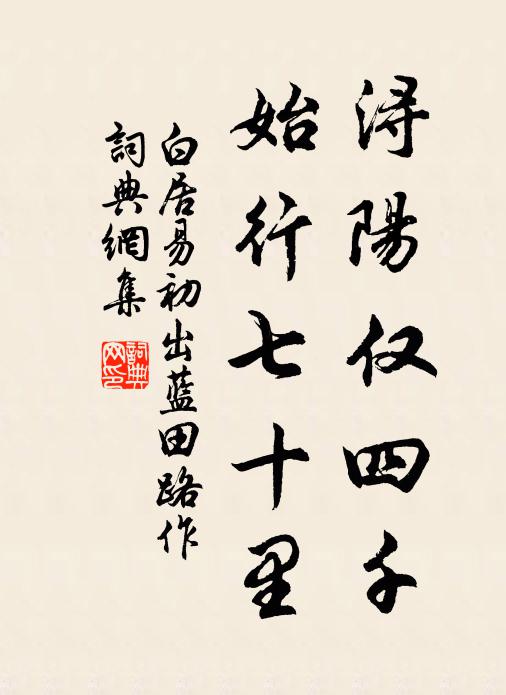 浔陽仅四千
始行七十里
白居易初出藍田路作
詞典網集
詞典网印